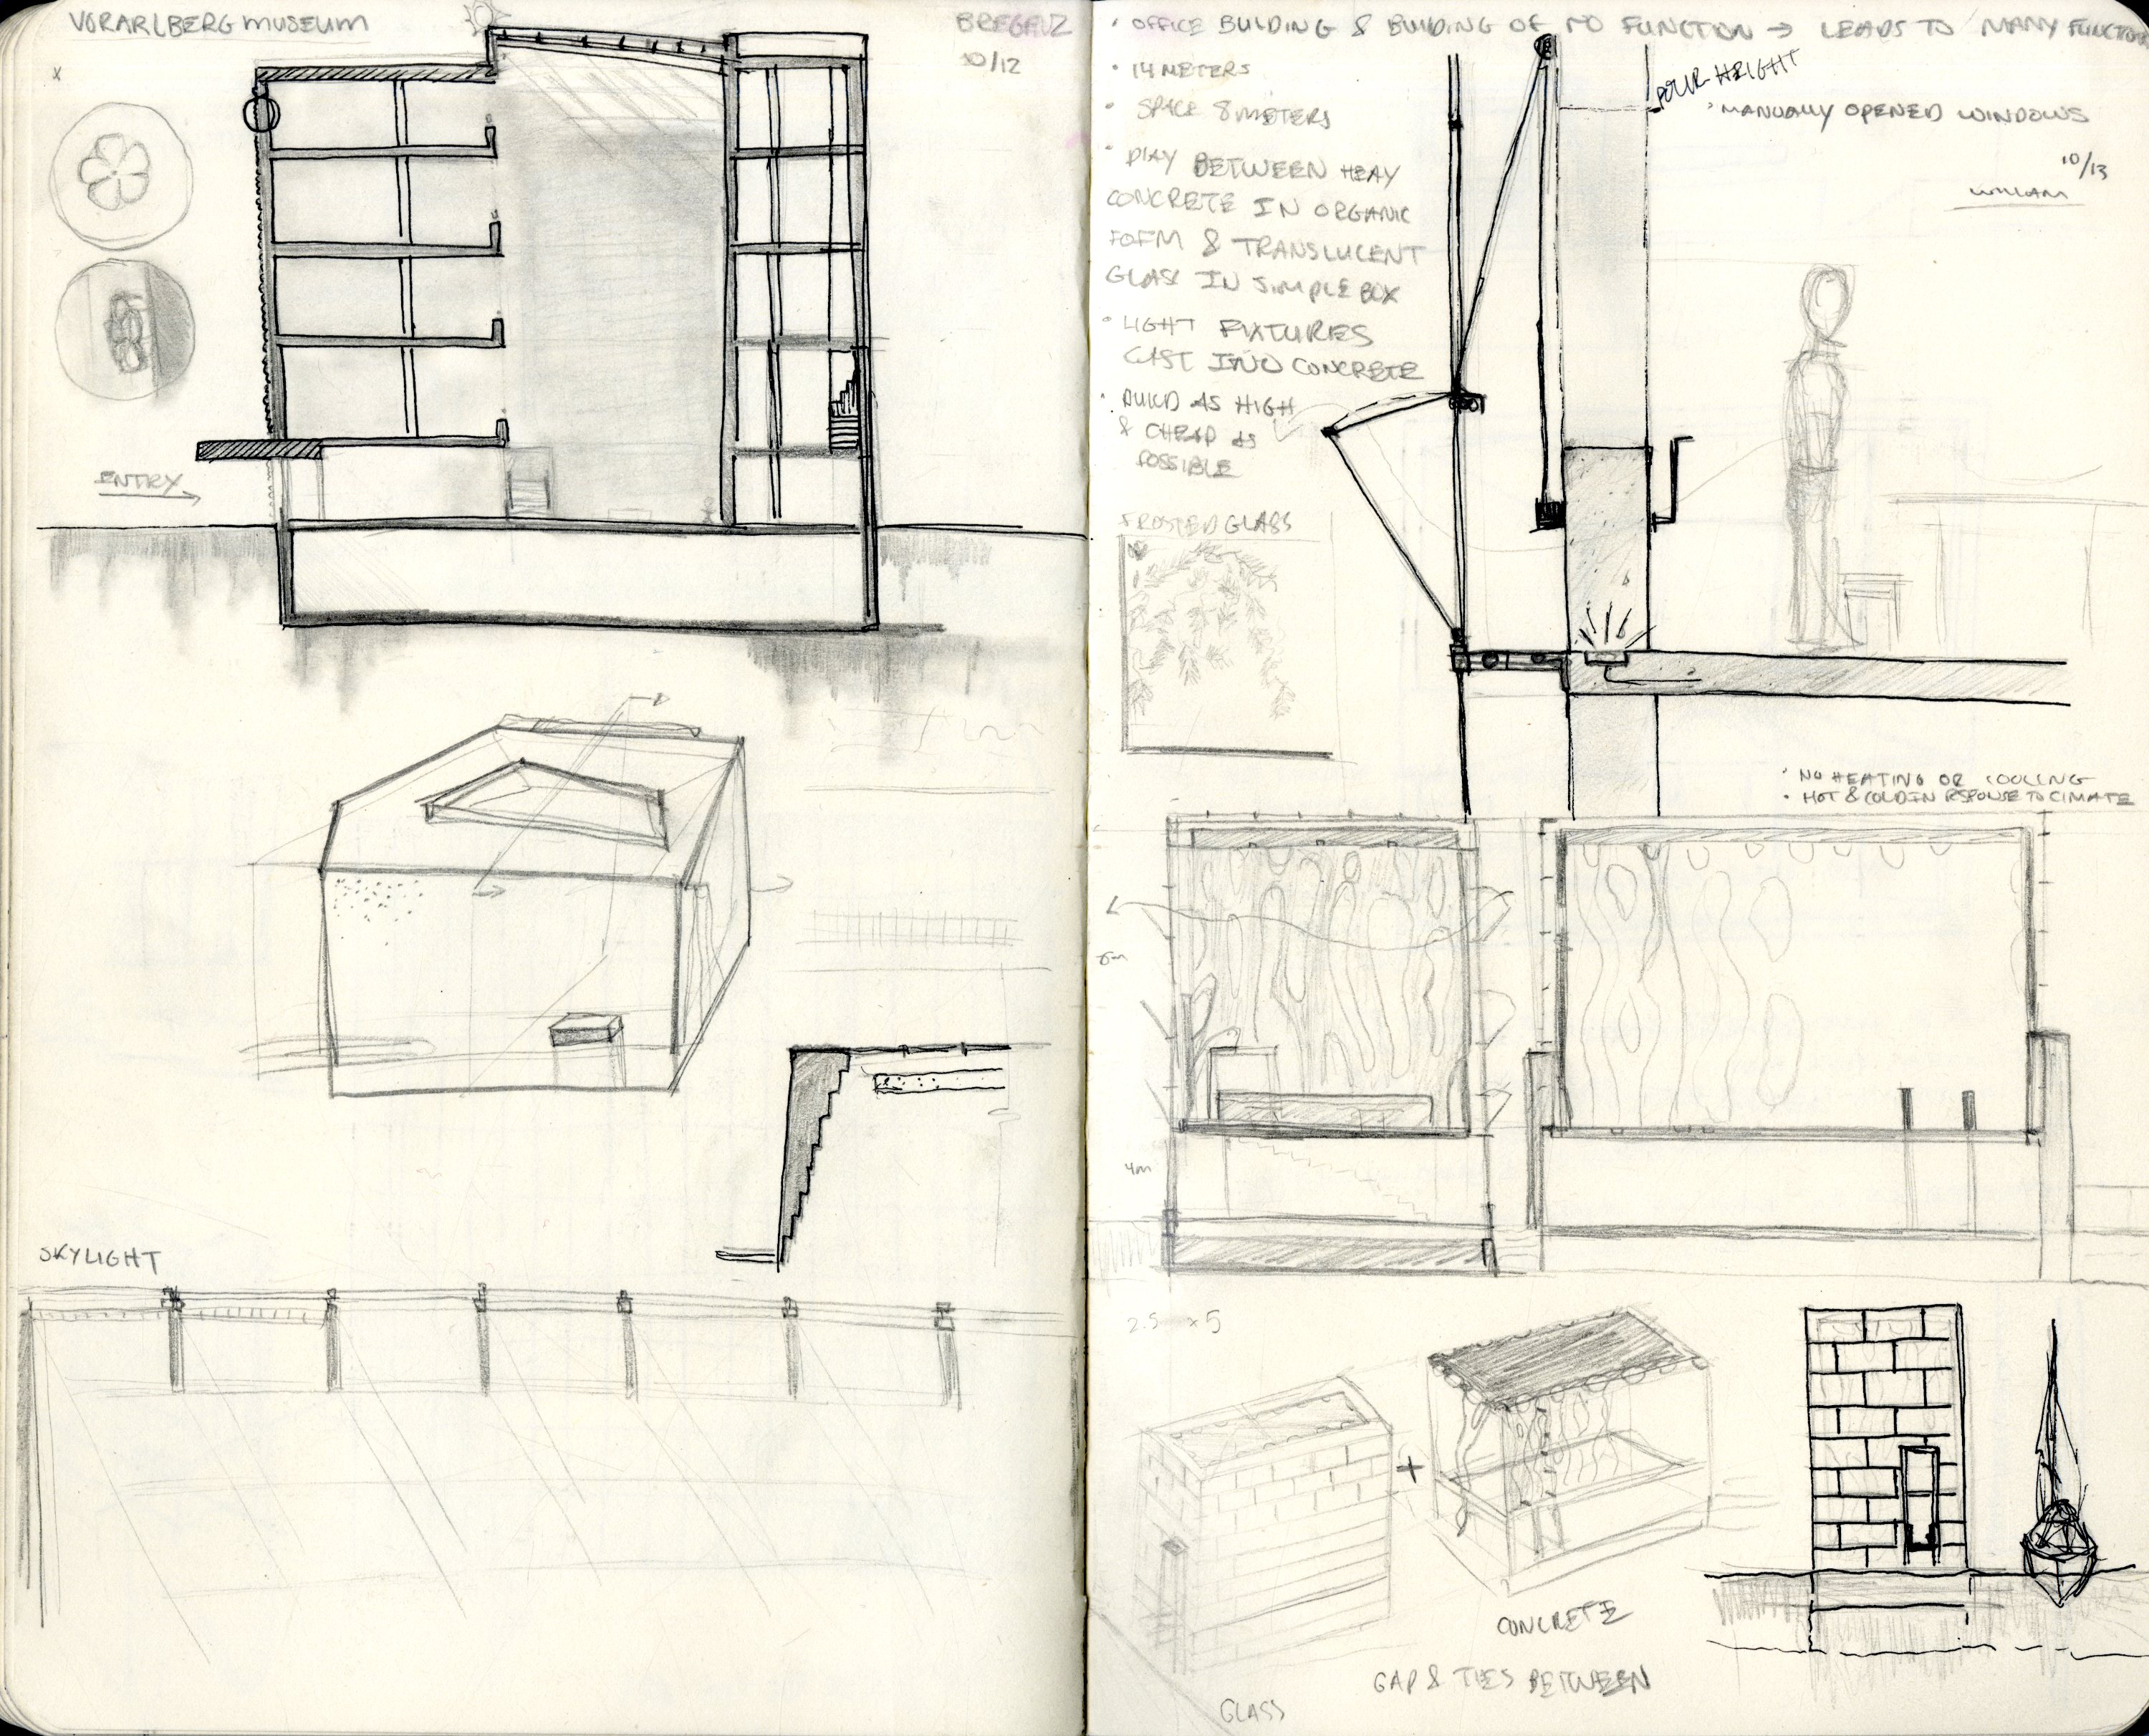 VORARLBERG MUSEUM
BREGENZ
10/12
x
ENTRY
SKYLIGHT
· OFFICE BUILDING & BUILDING OF NO FUNCTION → LEADS TO MANY FUNCTIONS
· 14 METERS
· SPACE 8 METERS
· PLAY BETWEEN HEAY
CONCRETE IN ORGANIC
FORM & TRANSLUCENT
GLASS IN SIMPLE BOX
· LIGHT FIXTURES
CAST INTO CONCRETE
· BUILD AS HIGH
& CHEAP AS
POSSIBLE
POUR HEIGHT
· MANUALLY OPENED WINDOWS
10/13
WILLIAM
FROSTED GLASS
· NO HEATING OR COOLING
· HOT & COLD IN RESPONSE TO CIMATE
6m
4m
2.5 x 5
+
CONCRETE
GAP & TIES BETWEEN
GLASS